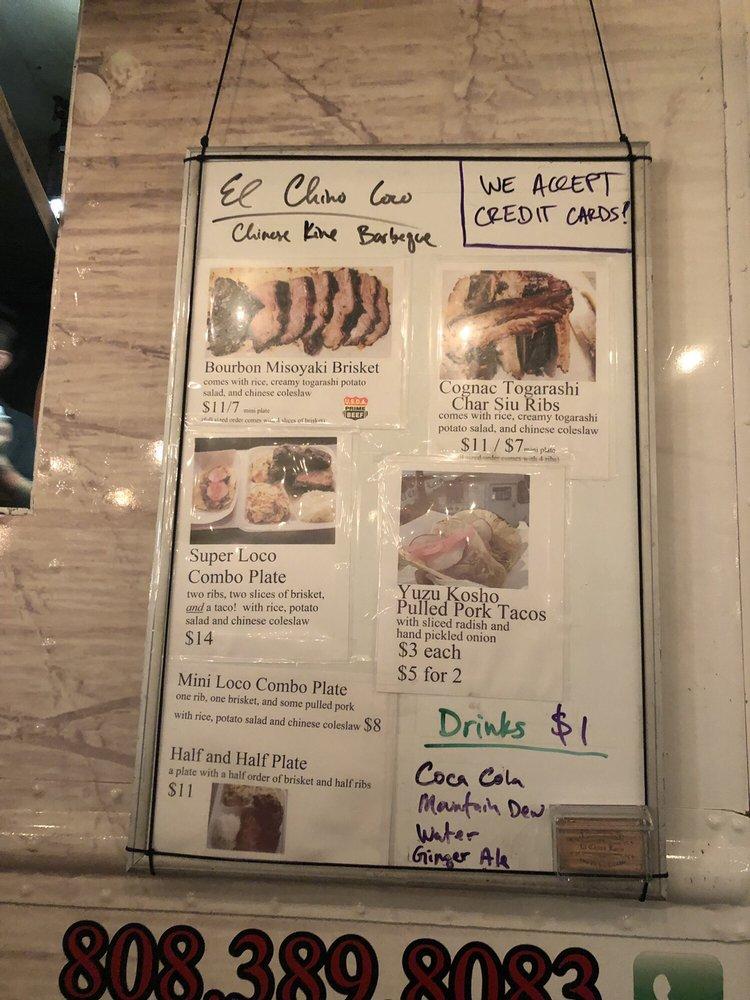 El Chino Loco
Chinese Kine Barbeque
WE ACCEPT
CREDIT CARDS!
Bourbon Misoyaki Brisket
comes with rice, creamy togarashi potato
salad, and chinese coleslaw
$11/7 mini plate
U.S.D.A.
PRIME
BEEF
Cognac Togarashi
Char Siu Ribs
comes with rice, creamy togarashi
potato salad, and chinese coleslaw
$11 / $7 mini plate
Super Loco
Combo Plate
two ribs, two slices of brisket,
and a taco! with rice, potato
salad and chinese coleslaw
$14
Yuzu Kosho
Pulled Pork Tacos
with sliced radish and
hand pickled onion
$3 each
$5 for 2
Mini Loco Combo Plate
one rib, one brisket, and some pulled pork
with rice, potato salad and chinese coleslaw $8
Half and Half Plate
a plate with a half order of brisket and half ribs
$11
Drinks $1
Coca Cola
Mountain Dew
Water
Ginger Ale
808.389.8083